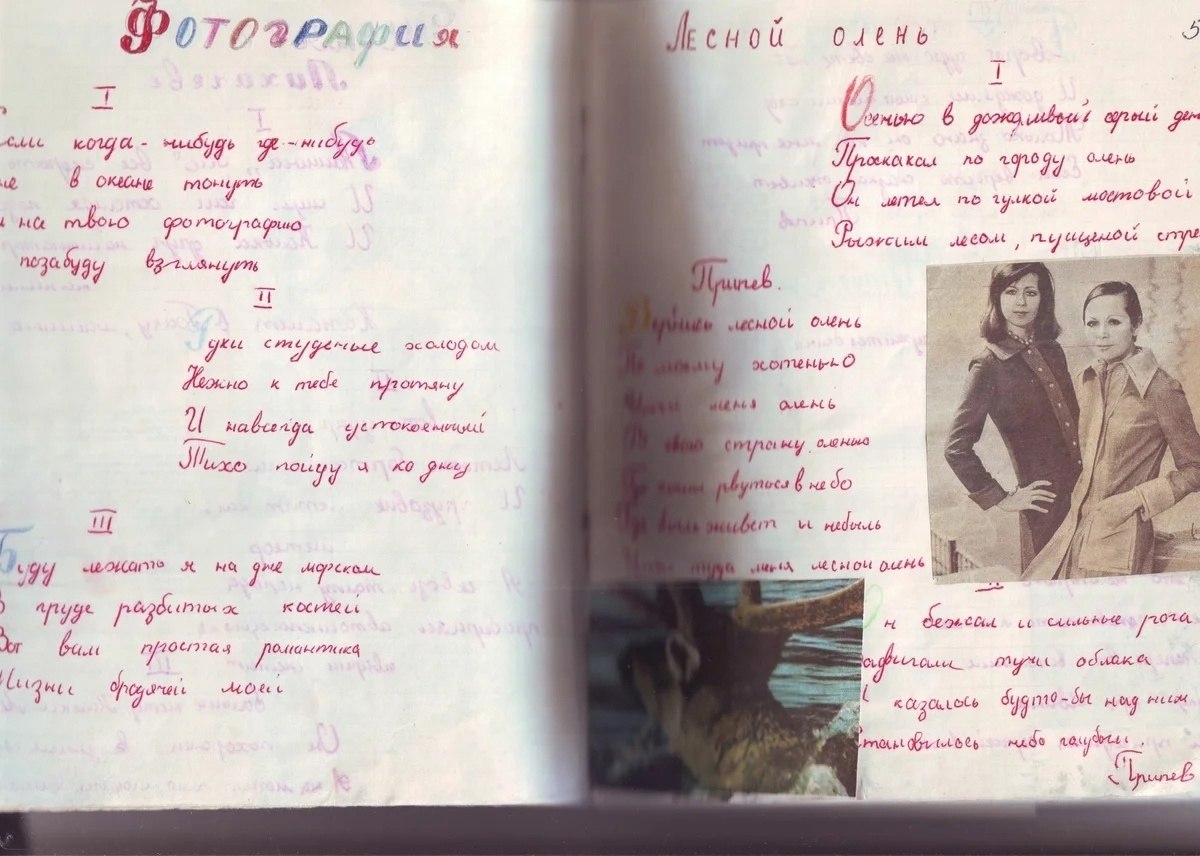 Фотография
I
сли когда-нибудь где-нибудь
не в океане тонуть
на твою фотографию
позабуду взглянуть
II
Руки студеные холодом
Нежно к тебе протяну
И навсегда успокоенный
Тихо пойду я ко дну
III
Буду лежать я на дне морском
В груде разбитых костей
Вот вам простая романтика
Жизни бродячей моей
Лесной олень
5
I
Осенью в дождливый серый ден
Проскакал по городу олень
Он летел по гулкой мостовой
Рыжим лесом, пущеной стре
Припев.
Вернись лесной олень
По моему хотенью
Умчи меня олень
В свою страну оленью
Где сосны рвуться в небо
Где быль живет и небыль
Умчи туда меня лесной олень
II
н бежал и сильные рога
адевали тучи облака
казалось будто-бы над ним
становилось небо голубым.
Припев